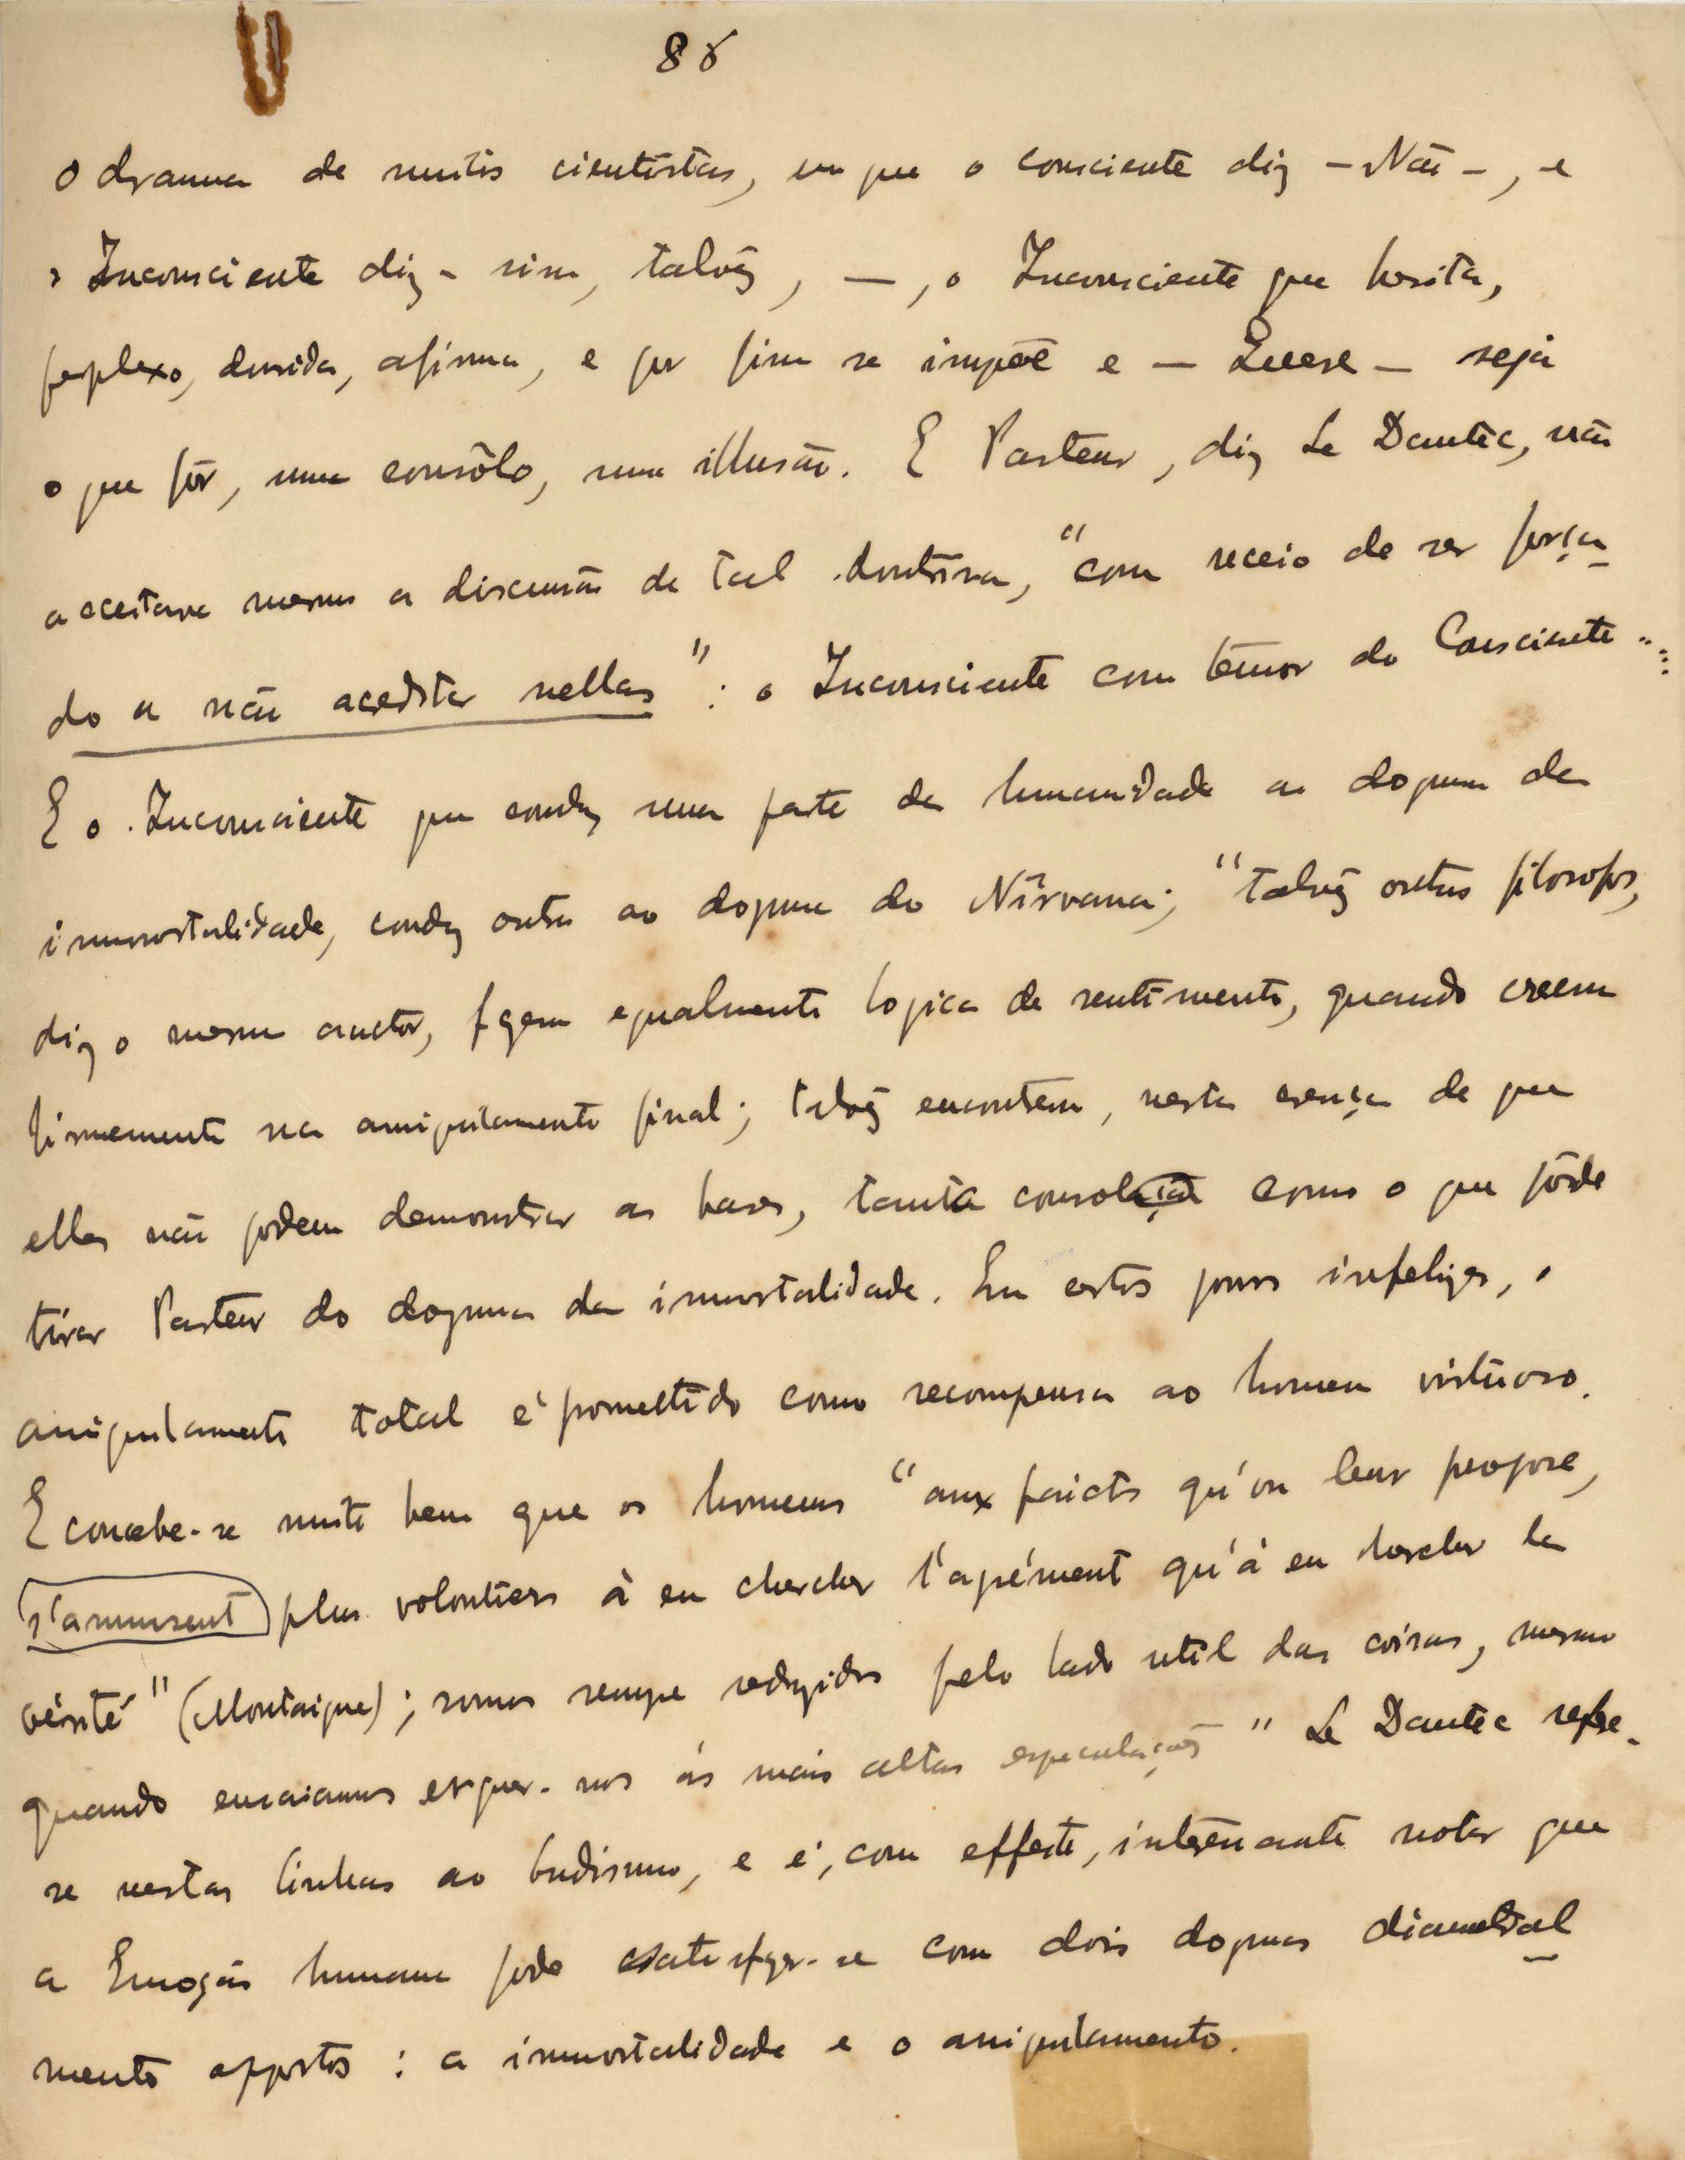 88
O dramma de muitos cientistas, em que o consciente diz - Não -, e
o Inconsciente diz - sim, talvêz, -, o Inconsciente que hesita,
perplexo, duvida, afirma, e por fim se impõe e - Quere - seja
o que fôr, uma consôlo, uma illusão. E Pasteur, diz Le Dantec, não
acceitava mesmo a discussão de tal doutrina, "com receio de ser força-
do a não acreditar nellas": o Inconsciente com têmor do Consciente....
E o Inconsciente que conduz uma parte da humanidade ao dogma da
immortalidade, conduz outra ao dogma do Nirvana; "talvêz outros filosofos,
diz o mesmo auctor, fazem egualmente logica de sentimento, quando creem
firmemente no aniquilamento final; talvêz encontrem, nesta crença de que
elles não podem demonstrar as bases, tanta consolação como o que pôde
tirar Pasteur do dogma da immortalidade. Em certos povos infelizes, o
aniquilamento total é promettido como recompensa ao homem virtuoso.
E concebe-se muito bem que os homens "aux faicts qu'on leur propose,
s'amusent plus volontiers à en chercher l'agrément qu'à en chercher la
vérité" (Montaigne); somos sempre seduzidos pelo lado util das coisas, mesmo
quando ensaiamos erguer-nos ás mais altas especulações" Le Dantec refere-
se nestas linhas ao budismo, e é, com effeito, interessante notar que
a Emoção humana pode satisfazer-se com dois dogmas diametral
mente oppostos: a immortalidade e o aniquilamento.